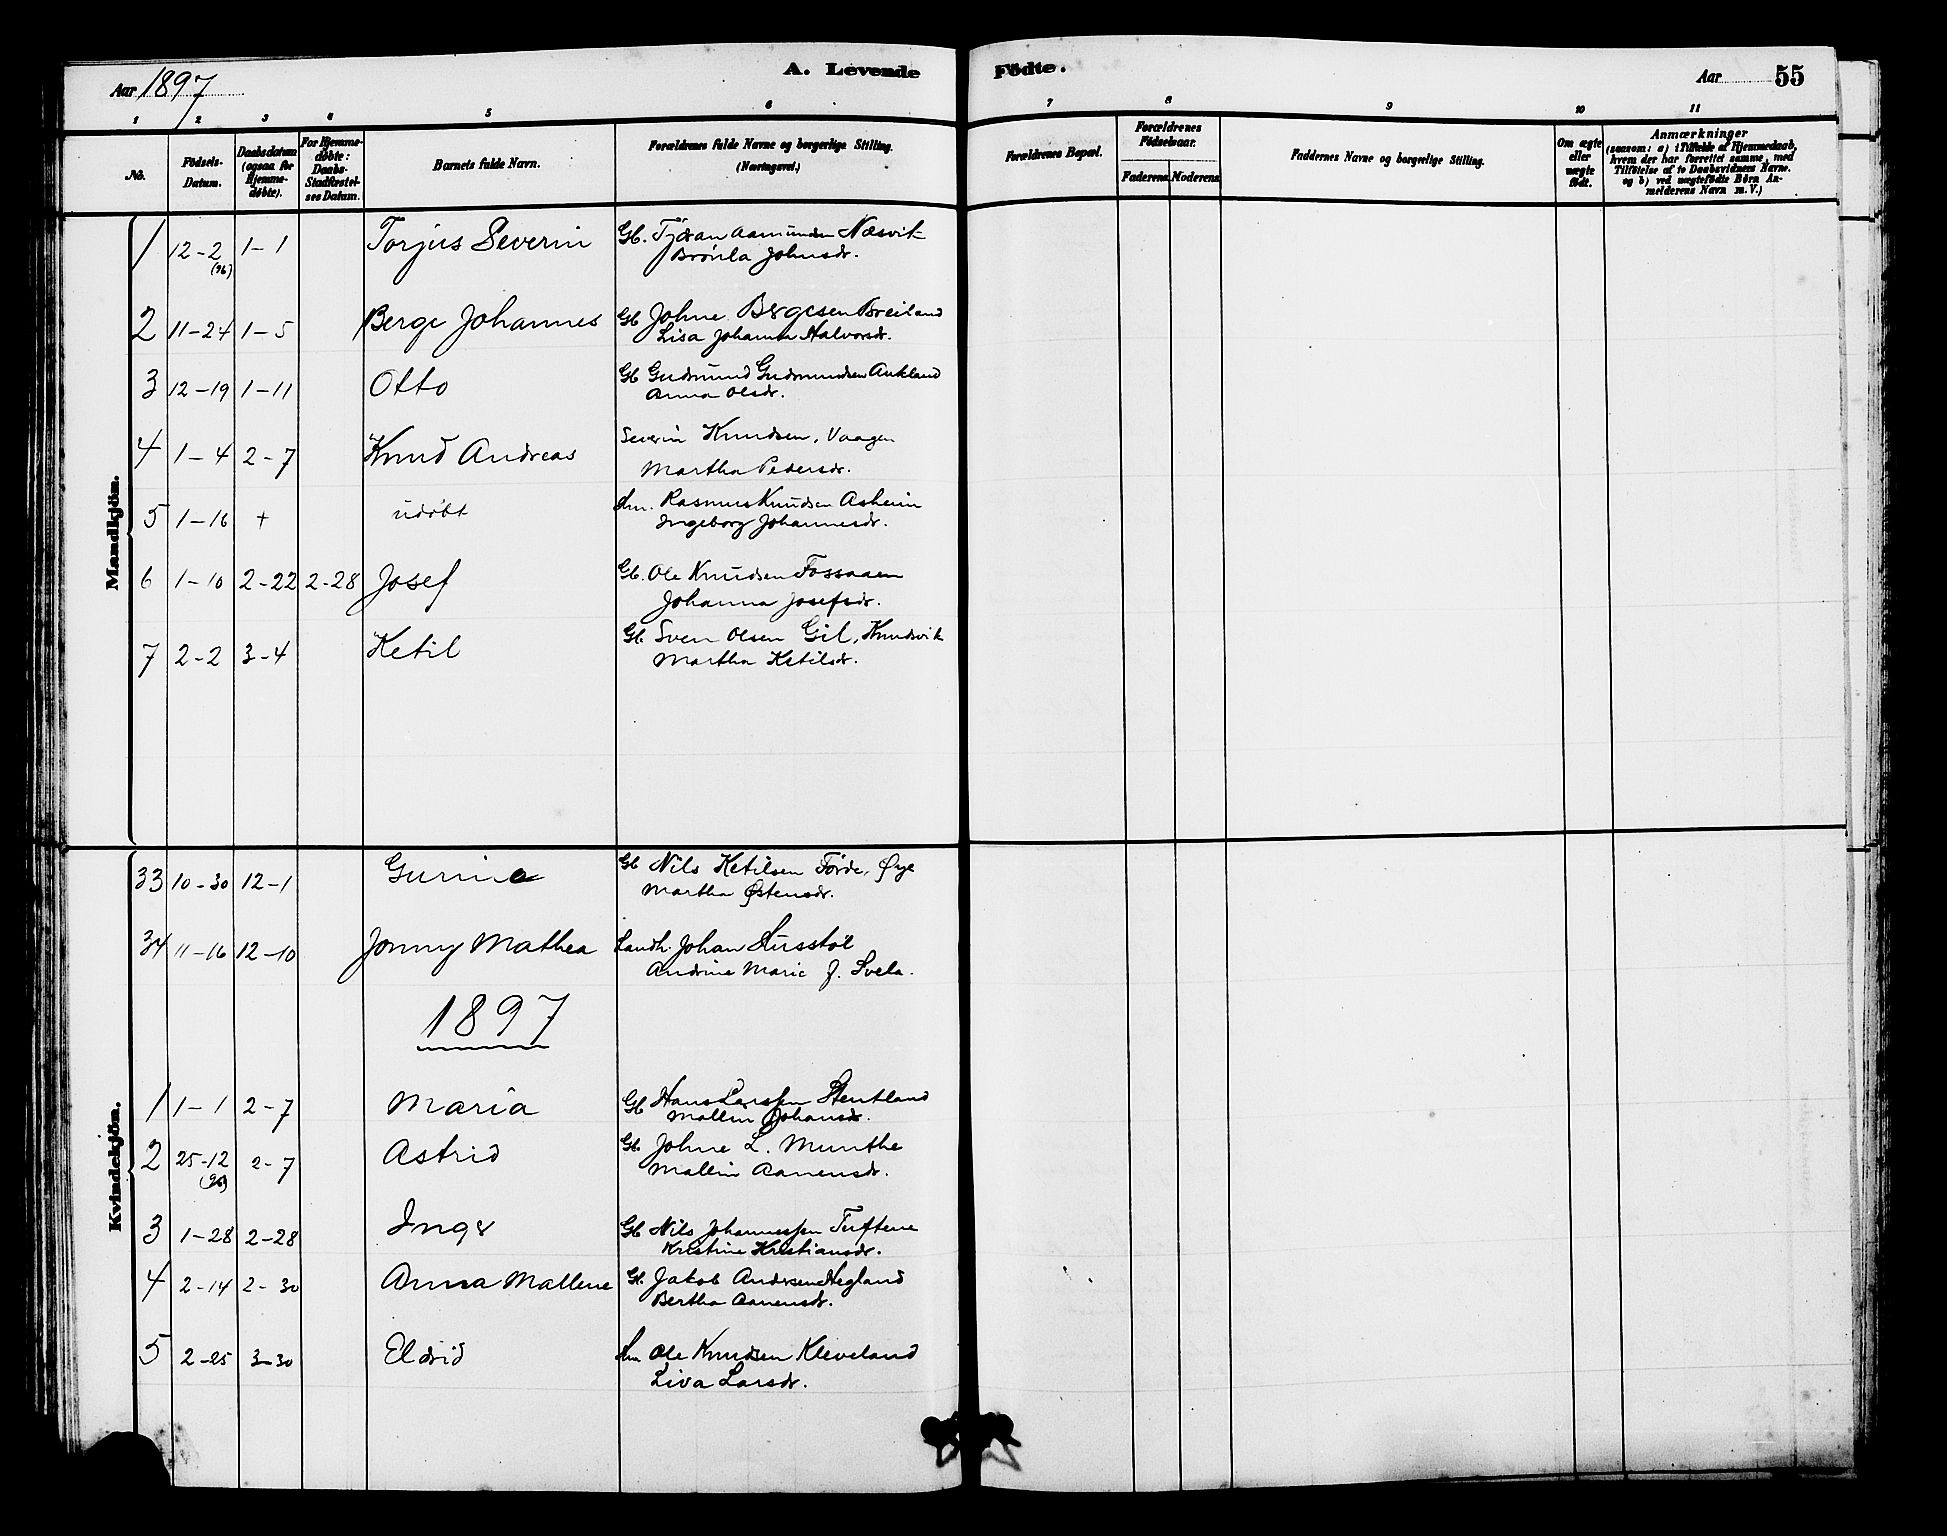 Aar 1897
A. Levende Fødte.
Aar 55
1 2 3 4 5 6 7 8 9 10 11
No.
Fødsels-Datum.
Daabsdatum (ogsaa for Hjemme-døbte).
For Hjemme-døbte: Daabs-Stadfæstel-ses Datum.
Barnets fulde Navn.
Forældrenes fulde Navne og borgerlige Stilling. (Næringsvei.)
Forældrenes Bopæl.
Forældrenes Fødselsaar.
Faderens. Moderens.
Faddernes Navne og borgerlige Stilling.
Om ægte eller uægte født.
Anmærkninger
(saasom: a) i Tilfælde af Hjemmedaab,
hvem der har forrettet samme, med
Tilføielse af to Daabsvidners Navne.
og b) ved uægtefødte Børn An-
melderens Navn m. V.)
Mandkjön.
1 12-2 1-1 Torjus Severin Gb. Tjøran Aamunden Næsvik
(96) Brönla Johnsdr.
2 11-24 1-5 Berge Johannes Gb Johne Bergesen Breiland
Lisa Johanna Halvorsdr.
3 12-19 1-11 Otto Gb Gudmund Gudmundsen Aukland
Anna Olsdr.
4 1-4 2-7 Knud Andreas Severin Knudsen, Vaagen
Martha Pedersdr.
5 1-16 + udøbt Hm. Rasmus Knudsen Asheim
Ingeborg Johannesdr.
6 1-10 2-22 2-28 Josef Gb. Ole Knudsen Fossaaen
Johanna Josefsdr.
7 2-2 3-4 Ketil Gb. Sven Olsen Gil, Knudsvik
Martha Ketilsdr.
Kvindekjön.
33 10-30 12-1 Gurine Gb Nils Ketilsen Förde, Øye
Martha Østensdr.
34 11-16 12-10 Jonny Mathea Landh. Johan Husstöl
Andrine Marie f. Svela.
1897
1 1-1 2-7 Maria Gb Hans Larssen Stentland
Mallin Johansdr.
2 25-12 2-7 Astrid Gb. Johne L. Munthe
(96) Mallin Aanensdr.
3 1-28 2-28 Inger Gb Nils Johannessen Tuftene
Kristine Kristiansdr.
4 2-14 2-30 Anna Mallene Gb. Jakob Andersen Hegland
Bertha Aanensdr.
5 2-25 3-30 Eldrid Hm Ole Knudsen Kleveland
Liva Larsdr.